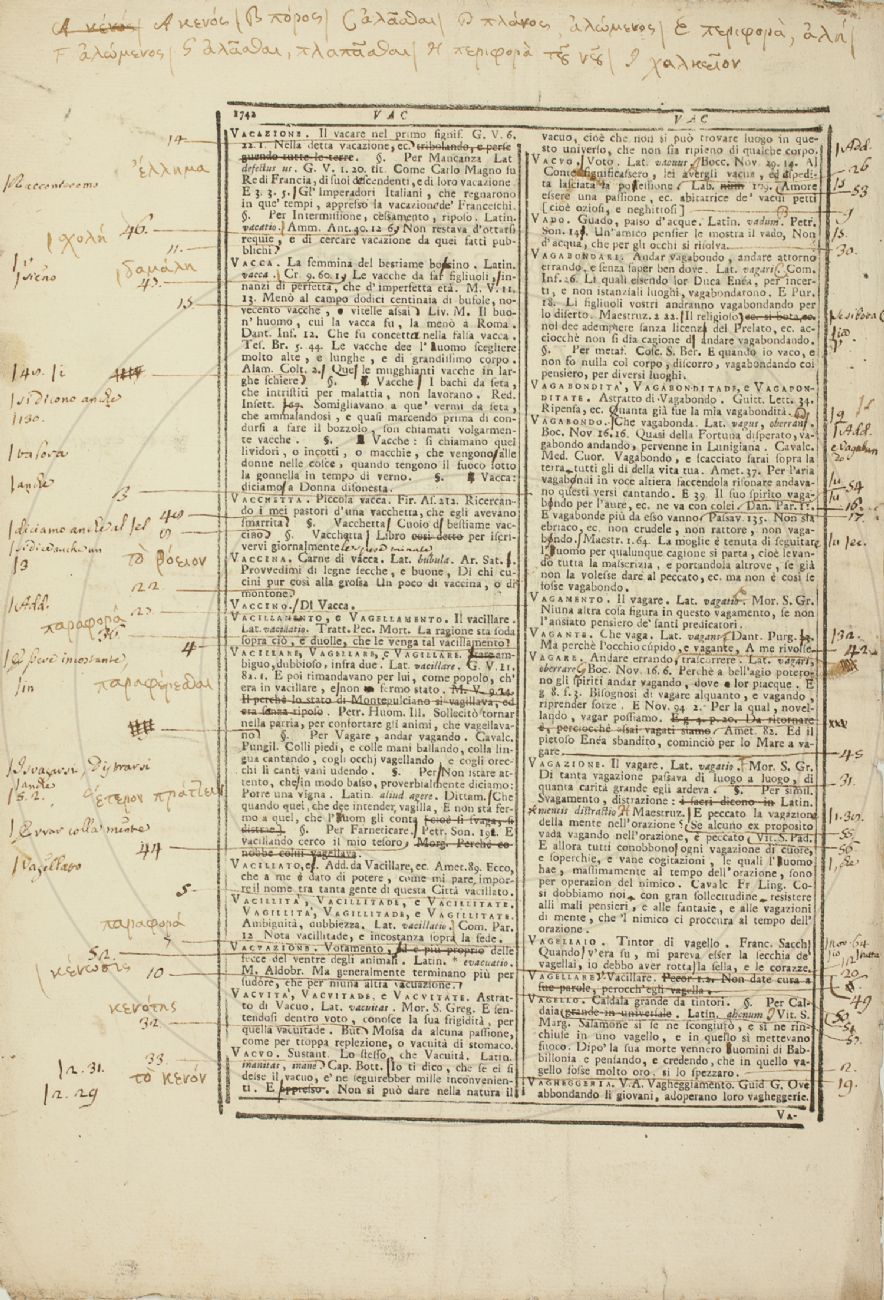 A κενός | B πόρος | C ἀλᾶσθαι | D πλάνος, ἀλώμενος | E περιφορὰ, ἄλη |
F ἀλώμενος | G ἀλᾶσθαι, πλανᾶσθαι | H περιφορὰ τοῦ νοῦ | I χαλκεῖον
1742 VAC
VACAZIONE. Il vacare nel primo signif. G. V. 6.
22. 1. Nella detta vacazione, ec. tribolando, e perse
guendo tutte le terre. §. Per Mancanza Lat
defectus us. G. V. 1. 20. tit. Come Carlo Magno fu
Re di Francia, di suoi descendenti, e di loro vacazione.
E 3. 3. 5. Gl' Imperadori Italiani, che regnarono
in que' tempi, appresso la vacazione de' Franceschi.
§. Per Intermissione, cessamento, riposo. Latin.
vacatio. Amm. Ant. 40. 12 6. Non restava d'ottarsi
requie, e di cercare vacazione da quei fatti pub-
blichi
VACCA. La femmina del bestiame bovino. Latin.
vacca. Cr. 9. 60. 1. Le vacche da far figliuoli, in-
nanzi di perfetta, che d'imperfetta età. M. V. 11.
13. Menò al campo dodici centinaia di bufole, no-
vecento vacche, e vitelle assai. Liv. M. Il buo-
n' huomo, cui la vacca fu, la menò a Roma.
Dant. Inf. 12. Che fu concetta nella falsa vacca.
Tes. Br. 5. 44. Le vacche dee l' uomo scegliere
molto alte, e lunghe, e di grandissimo corpo.
Alam. Colt. 2. Que' le mugghianti vacche in lar-
ghe schiere. §. Vacche. I bachi da seta,
che intristiti per malattia, non lavorano. Red.
Insett. Somigliavano a que' vermi da seta,
che ammalandosi, e quasi marcendo prima di con-
dursi a fare il bozzolo, son chiamati volgarmen-
te vacche. §. Vacche: si chiamano quei
lividori, o incotti, o macchie, che vengono alle
donne nelle cosce, quando tengono il fuoco sotto
la gonnella in tempo di verno. §. Vacca:
diciamo a Donna disonesta.
VACCHETTA. Piccola vacca. Fir. As. 212. Ricercan-
do i miei pastori d'una vacchetta, che egli avevano
smarrita. §. Vacchetta. Cuoio di bestiame vac-
cino. §. Vacchetta. Libro così detto per iscri-
vervi giornalmente le spese minute
VACCINA. Carne di vacca. Lat. bubula. Ar. Sat.
Provvedimi di legne secche, e buone, Di chi cu-
cini pur così alla grossa Un poco di vaccina, o di
montone.
VACCINO. Di Vacca.
VACILLAMENTO, E VAGELLAMENTO. Il vacillare.
Lat. vacillatio. Tratt. Pec. Mort. La ragione sta soda
sopra ciò, e duolle, che le venga tal vacillamento.
VACILLARE, VAGELLARE, E VAGILLARE. Stare am-
biguo, dubbioso, infra due. Lat. vacillare. G. V. 11.
82. 1. E poi rimandavano per lui, come popolo, ch'
era in vacillare, e non in fermo stato. M. V. 9. 24.
Il perchè lo stato di Montepulciano si vagillava, ed
era sanza riposo. Petr. Huom. Ill. Sollecitò tornar
nella patria, per confortare gli animi, che vagellava-
no. §. Per Vagare, andar vagando. Cavalc.
Pungil. Colli piedi, e colle mani ballando, colla lin-
gua cantando, cogli occhj vagellando e cogli orec-
chi li canti vani udendo. §. Per Non istare at-
tento, che in modo basso, proverbialmente diciamo:
Porre una vigna. Latin. aliud agere. Dittam. Che
quando quei, che dee intender, vagilla, E non sta fer-
mo a quel, che l' uom gli conta (cioè si svaga, si
distrae). §. Per Farneticare. Petr. Son. 191. E
vacillando cerco il mio tesoro. Morg. Perchè co-
nobbe colui vagellava.
VACILLATO, Add. da Vacillare, ec. Amet. 89. Ecco,
che a me è dato di potere, come mi pare, impor-
re il nome tra tanta gente di questa Città vacillato.
VACILLITÀ, VACILLITADE, E VACILLITATE,
VAGILLITÀ, VAGILLITADE, E VAGILLITATE.
Ambiguità, dubbiezza. Lat. vacillatio. Com. Par.
12 Nota vacillitade, e incostanza sopra la fede.
VACUAZIONE. Votamento, ed è più proprio delle
fecce del ventre degli animali. Latin. * evacuatio.
M. Aldobr. Ma generalmente terminano più per
sudore, che per niuna altra vacuazione.
VACUITÀ, VACUITADE, E VACUITATE. Astrat-
to di Vacuo. Lat. vacuitas. Mor. S. Greg. E sen-
tendosi dentro voto, conosce la sua frigidità, per
quella vacuitade. But Mossa da alcuna passione,
come per troppa replezione, o vacuità di stomaco.
VACUO. Sustant. Lo stesso, che Vacuità. Latin.
inanitas, inane. Cap. Bott. Io ti dico, che se ci si
desse il vacuo, e' ne seguirebber mille inconvenien-
ti. E appresso. Non si può dare nella natura il
VAC
vacuo, cioè che non si può trovare luogo in que-
sto universo, che non sia ripieno di qualche corpo.
VACUO. Voto. Lat. vacuus. Bocc. Nov. 29. 14. Al
Conte significassero, lei avergli vacua, ed espedi-
ta lasciata la possessione. Lab. num 179. Amore
essere una passione, ec. abitatrice de' vacui petti
[cioè oziosi, e neghittosi]
VADO. Guado, passo d'acque. Latin. vadum. Petr.
Son. 145. Un'amico pensier le mostra il vado, Non
d'acqua, che per gli occhi si risolva.
VAGABONDARE. Andar vagabondo, andare attorno
errando, e senza saper ben dove. Lat. vagari. Com.
Inf. 26. Li quali essendo lor Duca Enea, per incer-
ti, e non istanziali luoghi, vagabondarono. E Pur.
18. Li figliuoli vostri andranno vagabondando per
lo diserto. Maestruz. 2 22. Il religioso, ec. si bota, ec.
nol dee adempiere sanza licenza del Prelato, ec. ac-
ciocchè non si dia cagione di andare vagabondando.
§. Per metaf. Cosc. S. Ber. E quando io vaco, e
non fo nulla col corpo, discorro, vagabondando coi
pensiero, per diversi luoghi.
VAGABONDITÀ, VAGABONDITADE, E VAGABON-
DITATE. Astratto di Vagabondo. Guitt. Lett. 34.
Ripensa, ec. Quanta già fue la mia vagabondità.
VAGABONDO. Che vagabonda. Lat. vagus, oberrans.
Boc. Nov 16. 16. Quasi della Fortuna disperato, va-
gabondo andando, pervenne in Lunigiana. Cavalc.
Med. Cuor. Vagabondo, e scacciato sarai sopra la
terra, tutti gli dì della vita tua. Amet. 37. Per l'aria
vagabondi in voce altiera faccendola risonare andava-
no questi versi cantando. E 39. Il suo spirito vaga-
bondo per l'aure, ec. ne va con colei. Dan. Par. 11.
E vagabonde più da esso vanno. Passav. 135. Non sia
ebriaco, ec. non crudele, non rattore, non vaga-
bondo. Maestr. 1. 64. La moglie è tenuta di seguitare
l' uomo per qualunque cagione si parta, cioè levan-
do tutta la masserizia, e portandola altrove, se già
non la volesse dare al peccato, ec. ma non è così se
fosse vagabondo.
VAGAMENTO. Il vagare. Lat. vagatio. Mor. S. Gr.
Niuna altra cosa figura in questo vagamento, se non
l'ansiato pensiero de' santi predicatori.
VAGANTE. Che vaga. Lat. vagans. Dant. Purg.
Ma perchè l'occhio cupido, e vagante, A me rivolse.
VAGARE. Andare errando, trascorrere. Lat. vagari,
oberrare. Boc. Nov. 16. 6. Perchè a bell'agio potero-
no gli spiriti andar vagando, dove a lor piacque. E
g 8. f. 3. Bisognosi di vagare alquanto, e vagando,
riprender forze. E Nov. 94 2. Per la qual, novel-
lando, vagar possiamo. E g 4. p. 20. Da ritornare
è, perciocchè assai vagati siamo. Amet. 82. Ed il
pietoso Enea sbandito, cominciò per lo Mare a va-
gare.
VAGAZIONE. Il vagare. Lat. vagatio. Mor. S. Gr.
Di tanta vagazione passava di luogo a luogo, di
quanta carità grande egli ardeva. §. Per simil.
Svagamento, distrazione: i sacri dicono in Latin.
mentis distractio. H Maestruz. E peccato la vagazion
della mente nell'orazione? Se alcuno ex proposito
vada vagando nell'orazione, è peccato. Vit. S. Pad.
E allora tutti conobbono ogni vagazione di cuore,
e soperchie, e vane cogitazioni, le quali l' uomo
hae, massimamente al tempo dell'orazione, sono
per operazion del nimico. Cavalc Fr Ling. Co-
sì dobbiamo noi, con gran sollecitudine, resistere
alli mali pensieri, e alle fantasie, e alle vagazioni
di mente, che 'l nimico ci proccura al tempo dell'
orazione.
VAGELLAIO. Tintor di vagello. Franc. Sacch
Quando v'era su, mi pareva esser la secchia de'
vagellai, io debbo aver rotta la sella, e le corazze.
VAGELLARE. Vacillare. Pecor 1.2. Non date cura a
sue parole, perocch' egli vagella.
VAGELLO. Caldaia grande da tintori. §. Per Cal-
daia grande in universale. Latin. ahenum. Vit. S.
Marg. Salamone sì se ne scongiuro, e sì ne rin-
chiuse in uno vagello, e in quello sì mettevano
fuoco. Dipo' la sua morte vennero uomini di Bab-
billonia e pensando, e credendo, che in quello va-
gello fosse molto oro, sì lo spezzaro.
VAGHEGGERIA. V. A. Vagheggiamento. Guid G. Ove
abbondando li giovani, adoperano loro vagheggerie.
VA-
14.
ἔλλημα
Racconteremo
46.
χολή
11.
δαμάλη
43.
15
si dicono anche
anche
13
49
9
τὸ βόειον
22
Add.
παραφορὰ
4
παραφέρεσθαι
Svagarsi, Distrarsi
ἕτερόν τι πράττειν
Errar colla mente
44
Vagillato
5
παραφορά
52.
κένωσις
10
κενότης
32.
33.
2. 31.
τὸ κενόν
2. 29
Add.
26
53
15.
30.
Add.
54
16.
17.
132.
42
45
31.
55
56
20
49
12.
19.